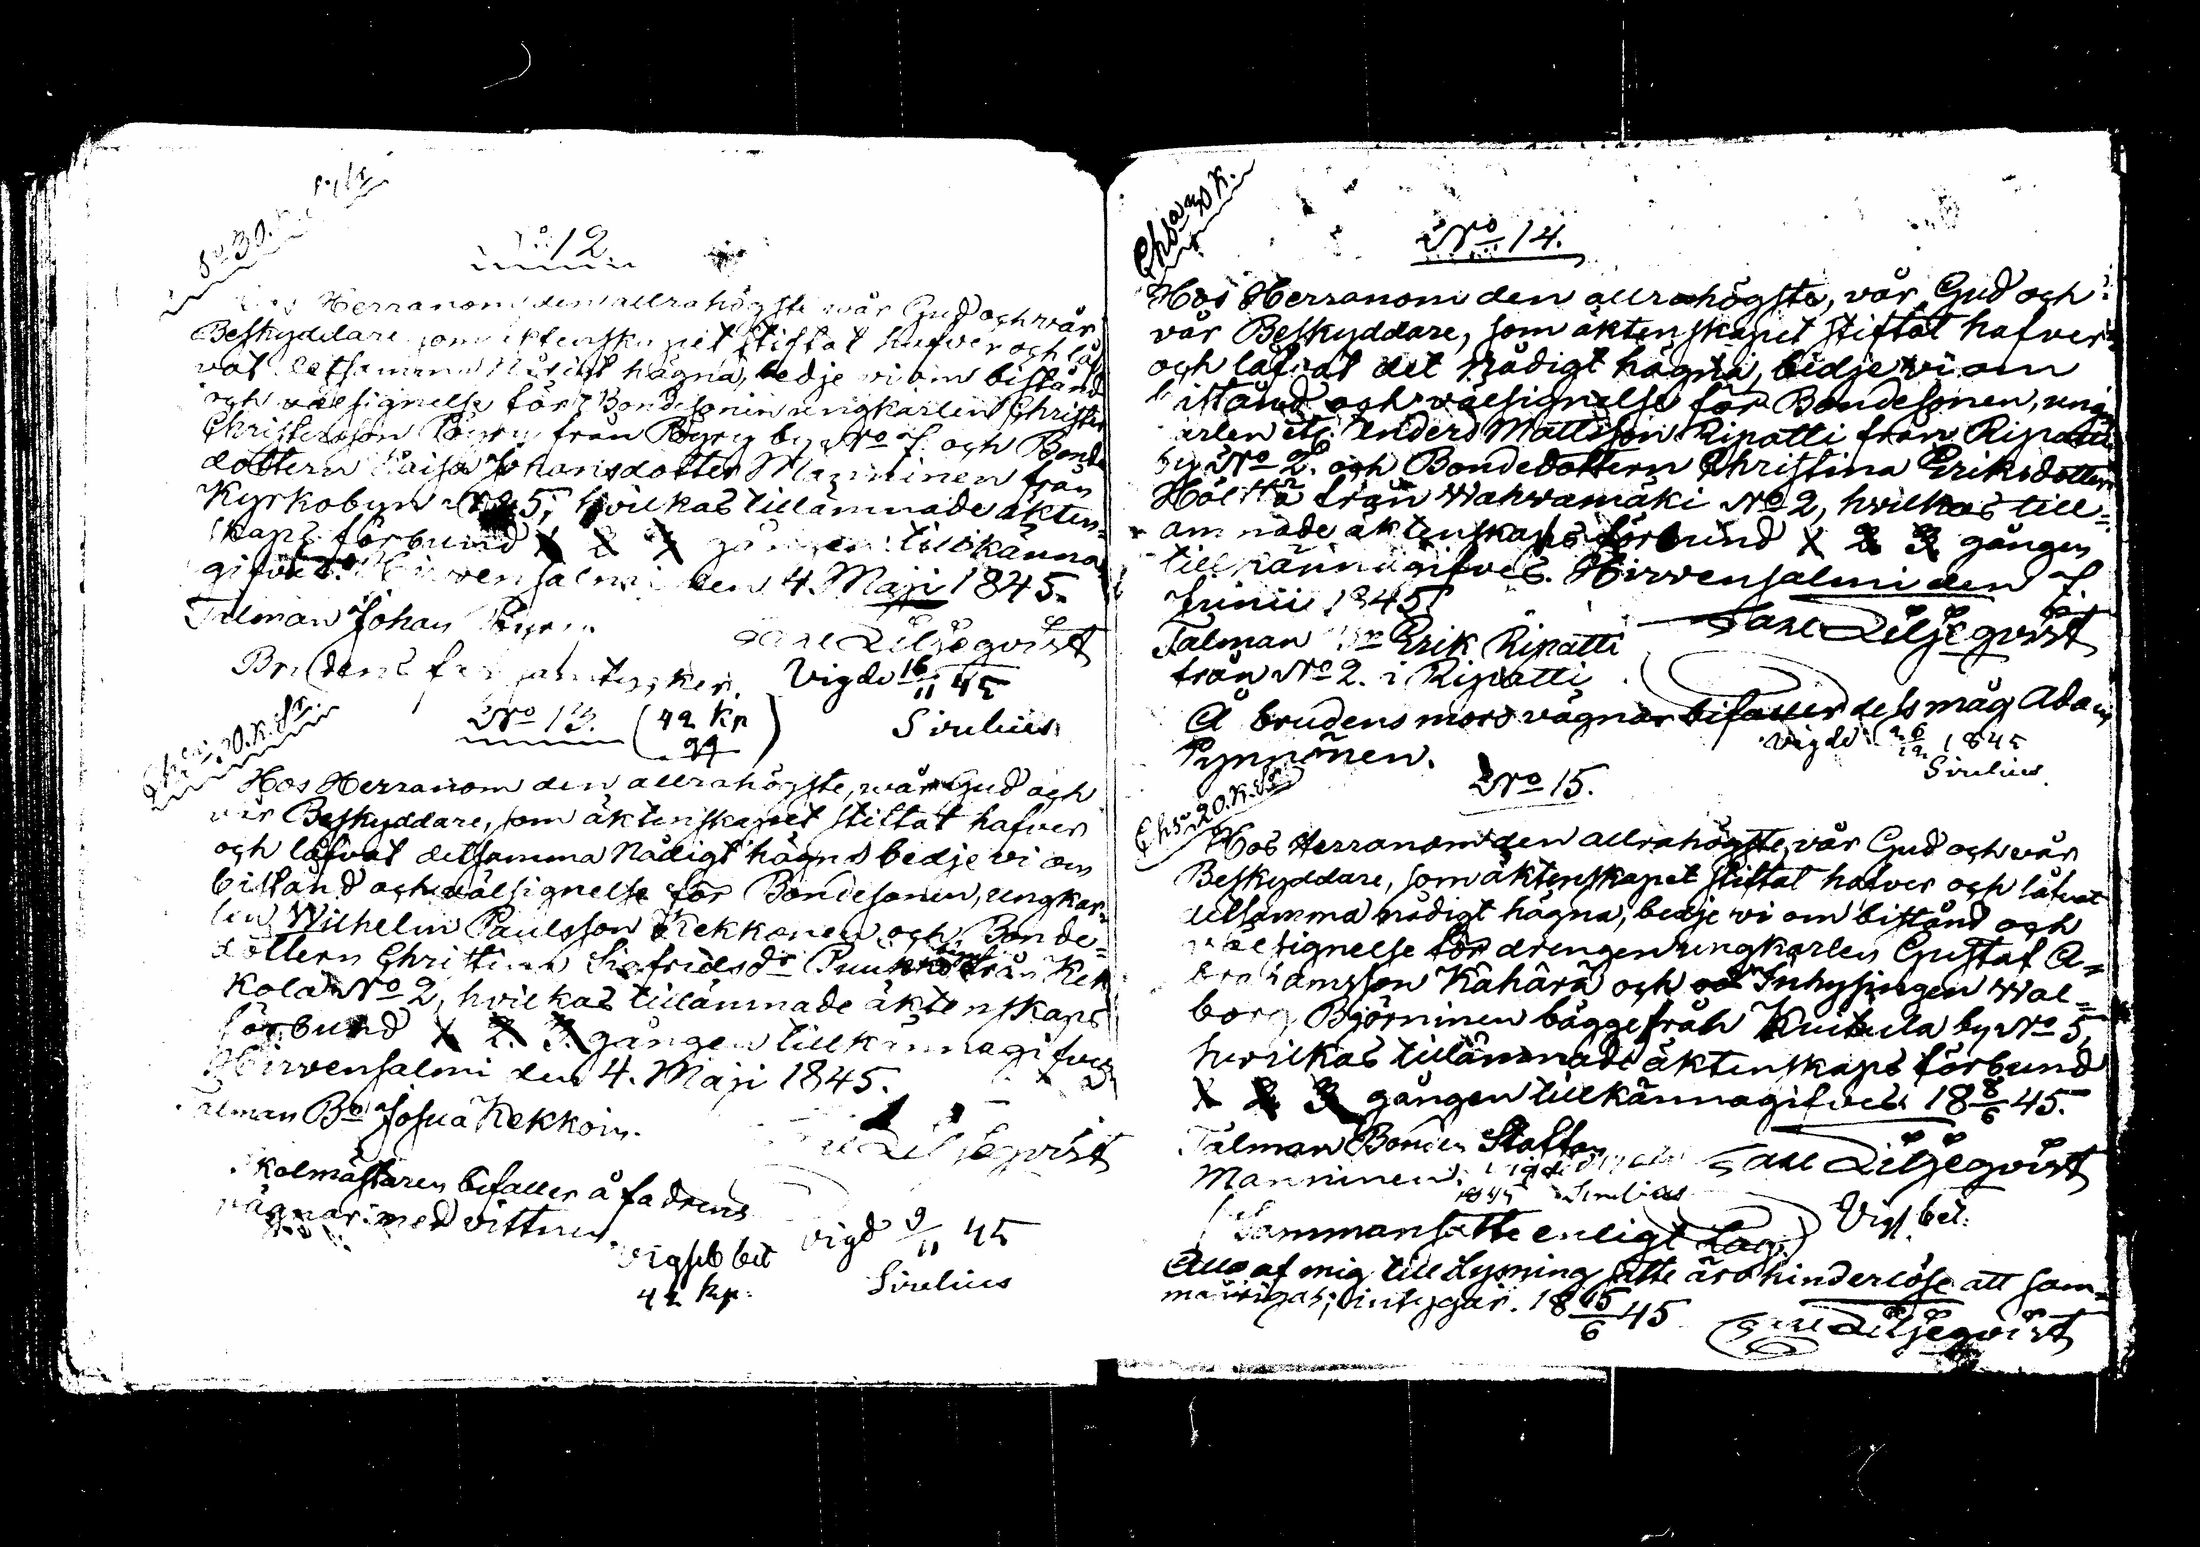 No 12.
Hos Herranom den allrahögste vår Gud och vår
Beskyddare som äktenskapet stiftat hafver och låf
vat detsamma Nådigt hägna, bedje vi om bistånd
och välsignelse för Bondesonen ungkarlen Christer
Christersson Pöyry från Pöyry by No och Bonde
dottern Caisa Johansdotter Manninen från
Kyrkobyn No 5, hvilkas tillämnade äkten=
skaps förbund 1 2 3 gången tillkänna
gifves. Hirvensalmi den 4. Maji 1845.
Talman Johan Pöyry.
Carl Liljeqvist
Brudens far samtycker.
Vigde 16/11 45
Sirelius
No 13. (42 kp
Hos Herranom den allrahögste, vår Gud och
vår Beskyddare, som äktenskapet stiftat hafver
och låfvat detsamma Nådigt hägna bedje vi om
bistånd och välsignelse för Bondesonen, ungkar=
len Wilhelm Paulsson Kekkonen och Bonde=
dottern Christina Sigfridsdr från Kek
kola No 2, hvilkas tillämnade äktenskaps
förbund 1 2. 3. gången tillkännagifves
Hirvensalmi den 4. Maji 1845.
Talman Bn Josua Kekkoin.
Carl Liljeqvist
Skolmästaren bifaller å fadrens
vägnar med vittnen
vigseb bet
42 kp.
vigd 9/11 45
Sirelius
No 14.
Hos Herranom den allrahögste, vår Gud och
vår Beskyddare, som äktenskapet stiftat hafver
och låfvat det nådigt hägna, bedje vi om
bistånd och välsignelse för Bondesonen, ung
karlen Anders Mattsson Ripatti från Ripatti
by No 2. och Bondedottern Christina Eriksdotter
Hölttä från Wahvamäki No 2, hvilkas till=
ämnade äktenskaps förbund 1 2 3 gången
tillkännagifves. Hirvensalmi den 1.
Junii 1845.
Talman Bn Erik Ripatti
från No 2. i Ripatti
Carl Liljeqvist
Å brudens mors vägnar bifaller dess måg Adam
Pynnönen.
vigde 26/12 1845
Sirelius
No 15.
Ehs. 20. K. Sr
Hos Herranom den allrahögste, vår Gud och vår
Beskyddare, som äktenskapet stiftat hafver och låfvat
detsamma nådigt hägna, bedje vi om bistånd och
välsignelse för drengen ungkarlen Gustaf A=
brahamsson Kähärä och Inhysingen Wal=
borg Björninen bägge från Kuitula by No 5,
hvilkas tillämnade äktenskaps förbund
1 2 3 gången tillkännagifves 18 8/6 45.
Talman Bonden Staffan
Manninen.
Carl Liljeqvist
1845 Sirelius
Vigs. bet.
(Sammansatte enligt Lag.)
Alla af mig till Lysning satte äro hinderlöse att sam=
manvigas; intygar. 18 15/6 45
Carl Liljeqvist